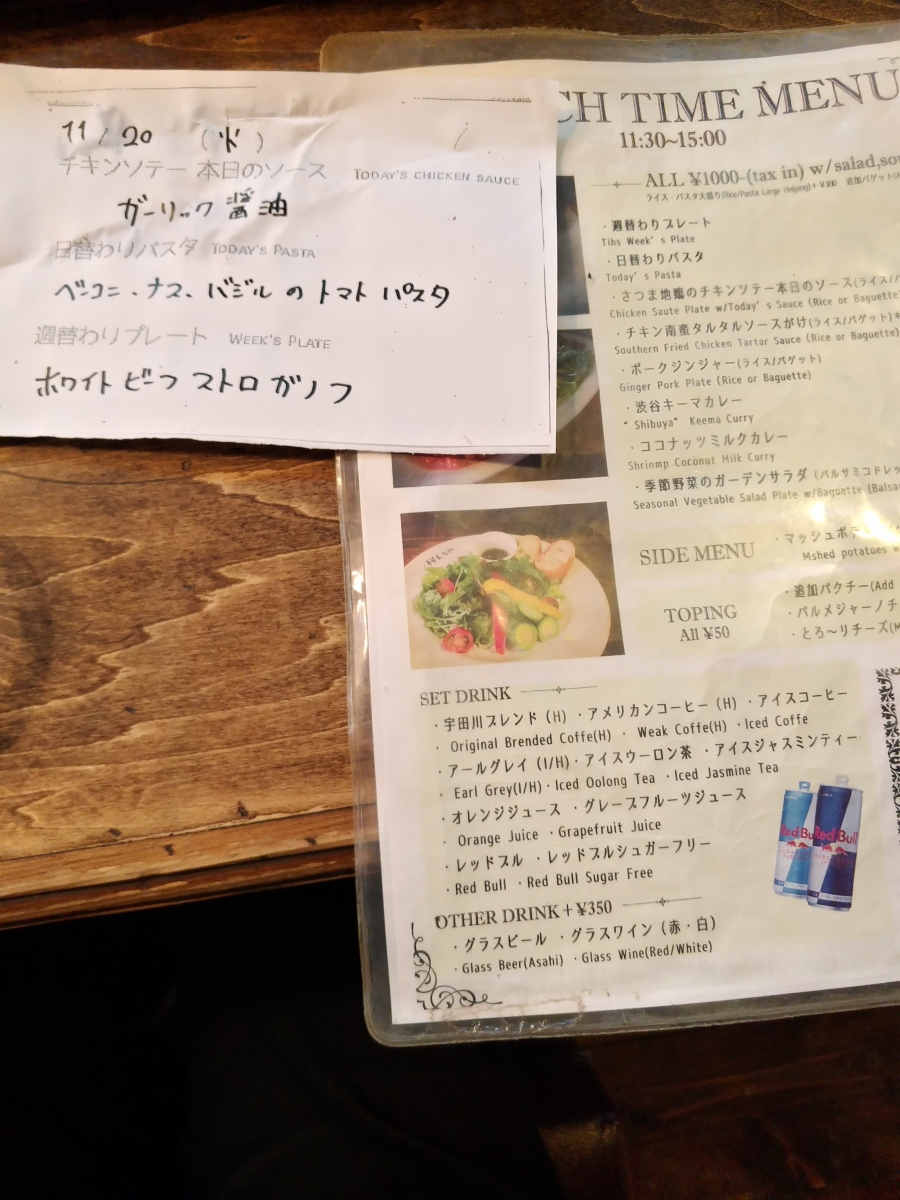 11/20 (火)
チキンソテー 本日のソース TODAY'S CHICKEN SAUCE
ガーリック醤油
日替わりパスタ TODAY'S PASTA
ベーコン、ナス、バジルのトマトパスタ
週替わりプレート WEEK'S PLATE
ホワイトビーフストロガノフ
CH TIME MENU
11:30~15:00
ALL ¥1000-(tax in) w/salad,sou
ライス・パスタ大盛り(Rice/Pasta Large Helping)+¥100 追加バゲット(
・週替わりプレート
Tihs Week's Plate
・日替わりパスタ
Today's Pasta
・さつま地鶏のチキンソテー本日のソース(ライス/バ
Chicken Saute Plate w/Today's Sauce (Rice or Baguette
・チキン南蛮タルタルソースがけ(ライス/バゲット)
Southern Fried Chicken Tartar Sauce (Rice or Baguette)
・ポークジンジャー(ライス/バゲット)
Ginger Pork Plate (Rice or Baguette)
・渋谷キーマカレー
"Shibuya" Keema Curry
・ココナッツミルクカレー
Shrinmp Coconut Milk Curry
・季節野菜のガーデンサラダ (バルサミコドレッ
Seasonal Vegetable Salad Plate w/Baguette (Balsa
SIDE MENU
・マッシュポテ
Mshed potatoes w
TOPING
All ¥50
・追加パクチー(Add
・パルメジャーノチ
・とろ～りチーズ(M
SET DRINK
・宇田川ブレンド (H) ・アメリカンコーヒー (H) ・アイスコーヒー
・Original Brended Coffe(H) ・ Weak Coffe(H) ・Iced Coffe
・アールグレイ (I/H)・アイスウーロン茶 ・アイスジャスミンティー
・Earl Grey(I/H)・Iced Oolong Tea ・Iced Jasmine Tea
・オレンジジュース ・グレープフルーツジュース
・Orange Juice ・Grapefruit Juice
・レッドブル ・レッドブルシュガーフリー
・Red Bull ・Red Bull Sugar Free
Red Bull
Red Bull
OTHER DRINK+¥350
・グラスビール ・グラスワイン (赤・白)
・Glass Beer(Asahi) ・Glass Wine(Red/White)